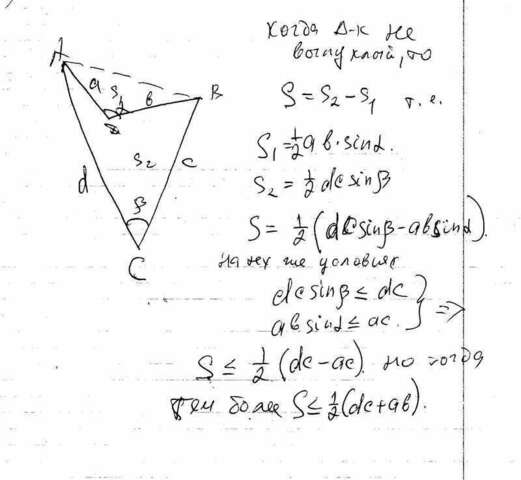 Когда Δ-к не
выпуклый, то
S = S₂ - S₁ т.е.
S₁ = ½ ab · sinα.
S₂ = ½ dc sinβ
S = ½ (dc sinβ - ab sinα).
На тех же условиях
dc sinβ ≤ dc
ab sinα ≤ ac. } =>
S ≤ ½ (dc - ac). но тогда
тем более S ≤ ½ (dc + ab).
A
a S₁ b B
S₂ c
d
β
C